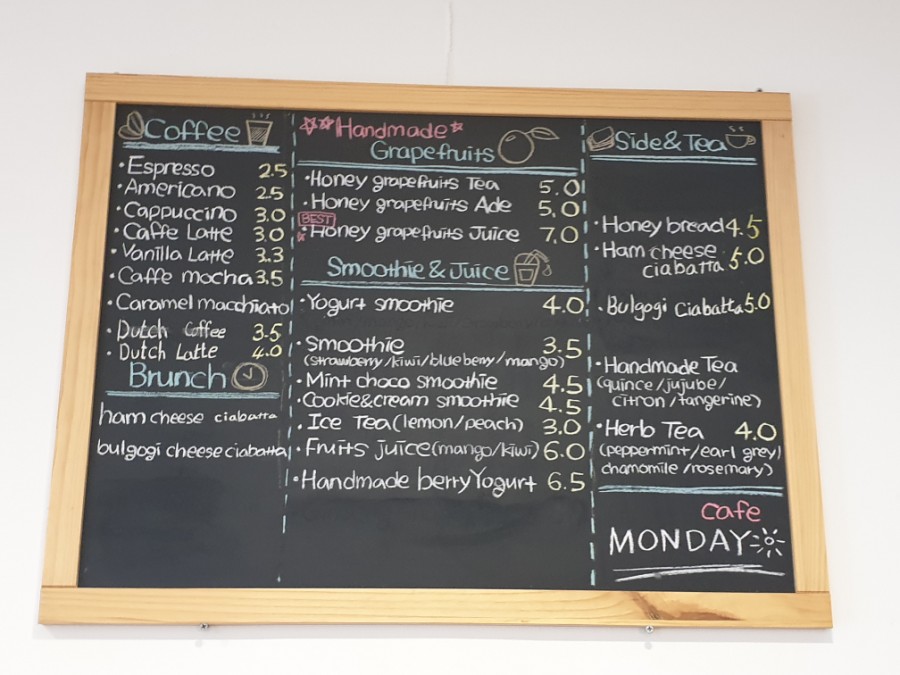 Coffee
• Espresso 2.5
• Americano 2.5
• Cappuccino 3.0
• Caffe Latte 3.0
• Vanilla Latte 3.3
• Caffe mocha 3.5
• Caramel macchiato
• Dutch Coffee 3.5
• Dutch Latte 4.0
Brunch
ham cheese ciabatta
bulgogi cheese ciabatta
Handmade
Grapefruits
• Honey grapefruits Tea 5.0
• Honey grapefruits Ade 5.0
BEST
• Honey grapefruits Juice 7.0
Smoothie & Juice
• Yogurt smoothie 4.0
• Smoothie 3.5
(strawberry/kiwi/blueberry/mango)
• Mint choco smoothie 4.5
• Cookie&cream smoothie 4.5
• Ice Tea (lemon/peach) 3.0
• Fruits juice (mango/kiwi) 6.0
• Handmade berry Yogurt 6.5
Side & Tea
• Honey bread 4.5
• Ham cheese
ciabatta 5.0
• Bulgogi ciabatta 5.0
• Handmade Tea
(quince/jujube/
citron/tangerine)
• Herb Tea 4.0
(peppermint/earl grey/
chamomile/rosemary)
cafe
MONDAY